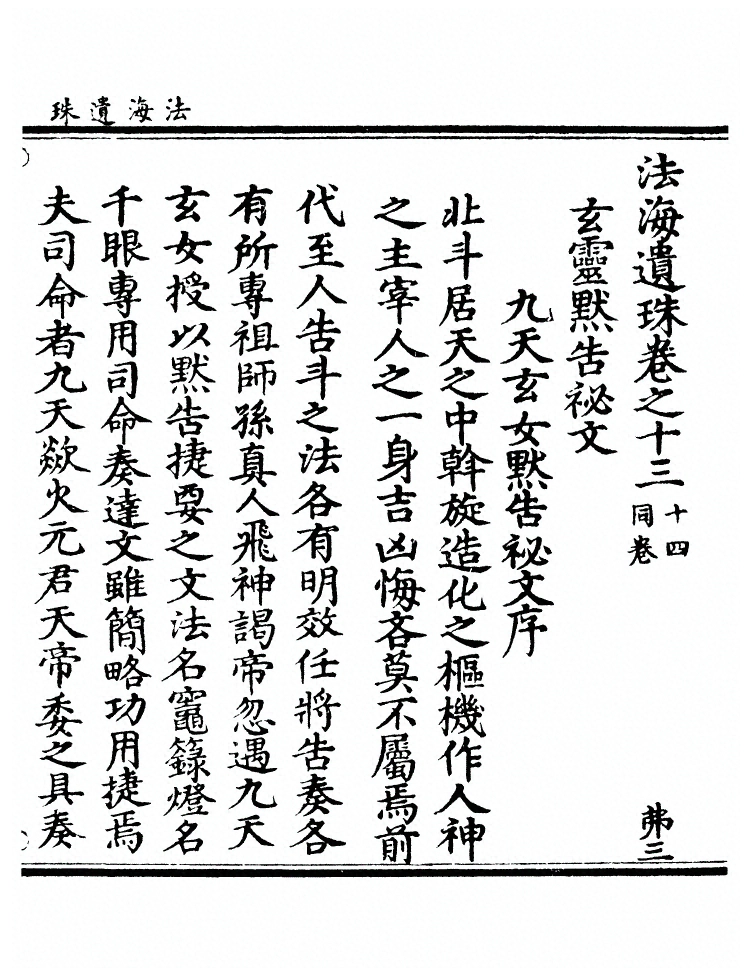 法海遺珠
法海遺珠卷之十三 十四同卷 弗三
玄靈默告祕文
九天玄女默告祕文序
北斗居天之中斡旋造化之樞機作人神
之主宰人之一身吉凶悔吝莫不屬焉前
代至人告斗之法各有明效任將告奏各
有所專祖師孫真人飛神謁帝忽遇九天
玄女授以默告捷要之文法名竈籙燈名
千眼專用司命奏達文雖簡略功用捷焉
夫司命者九天歘火元君天帝委之具奏